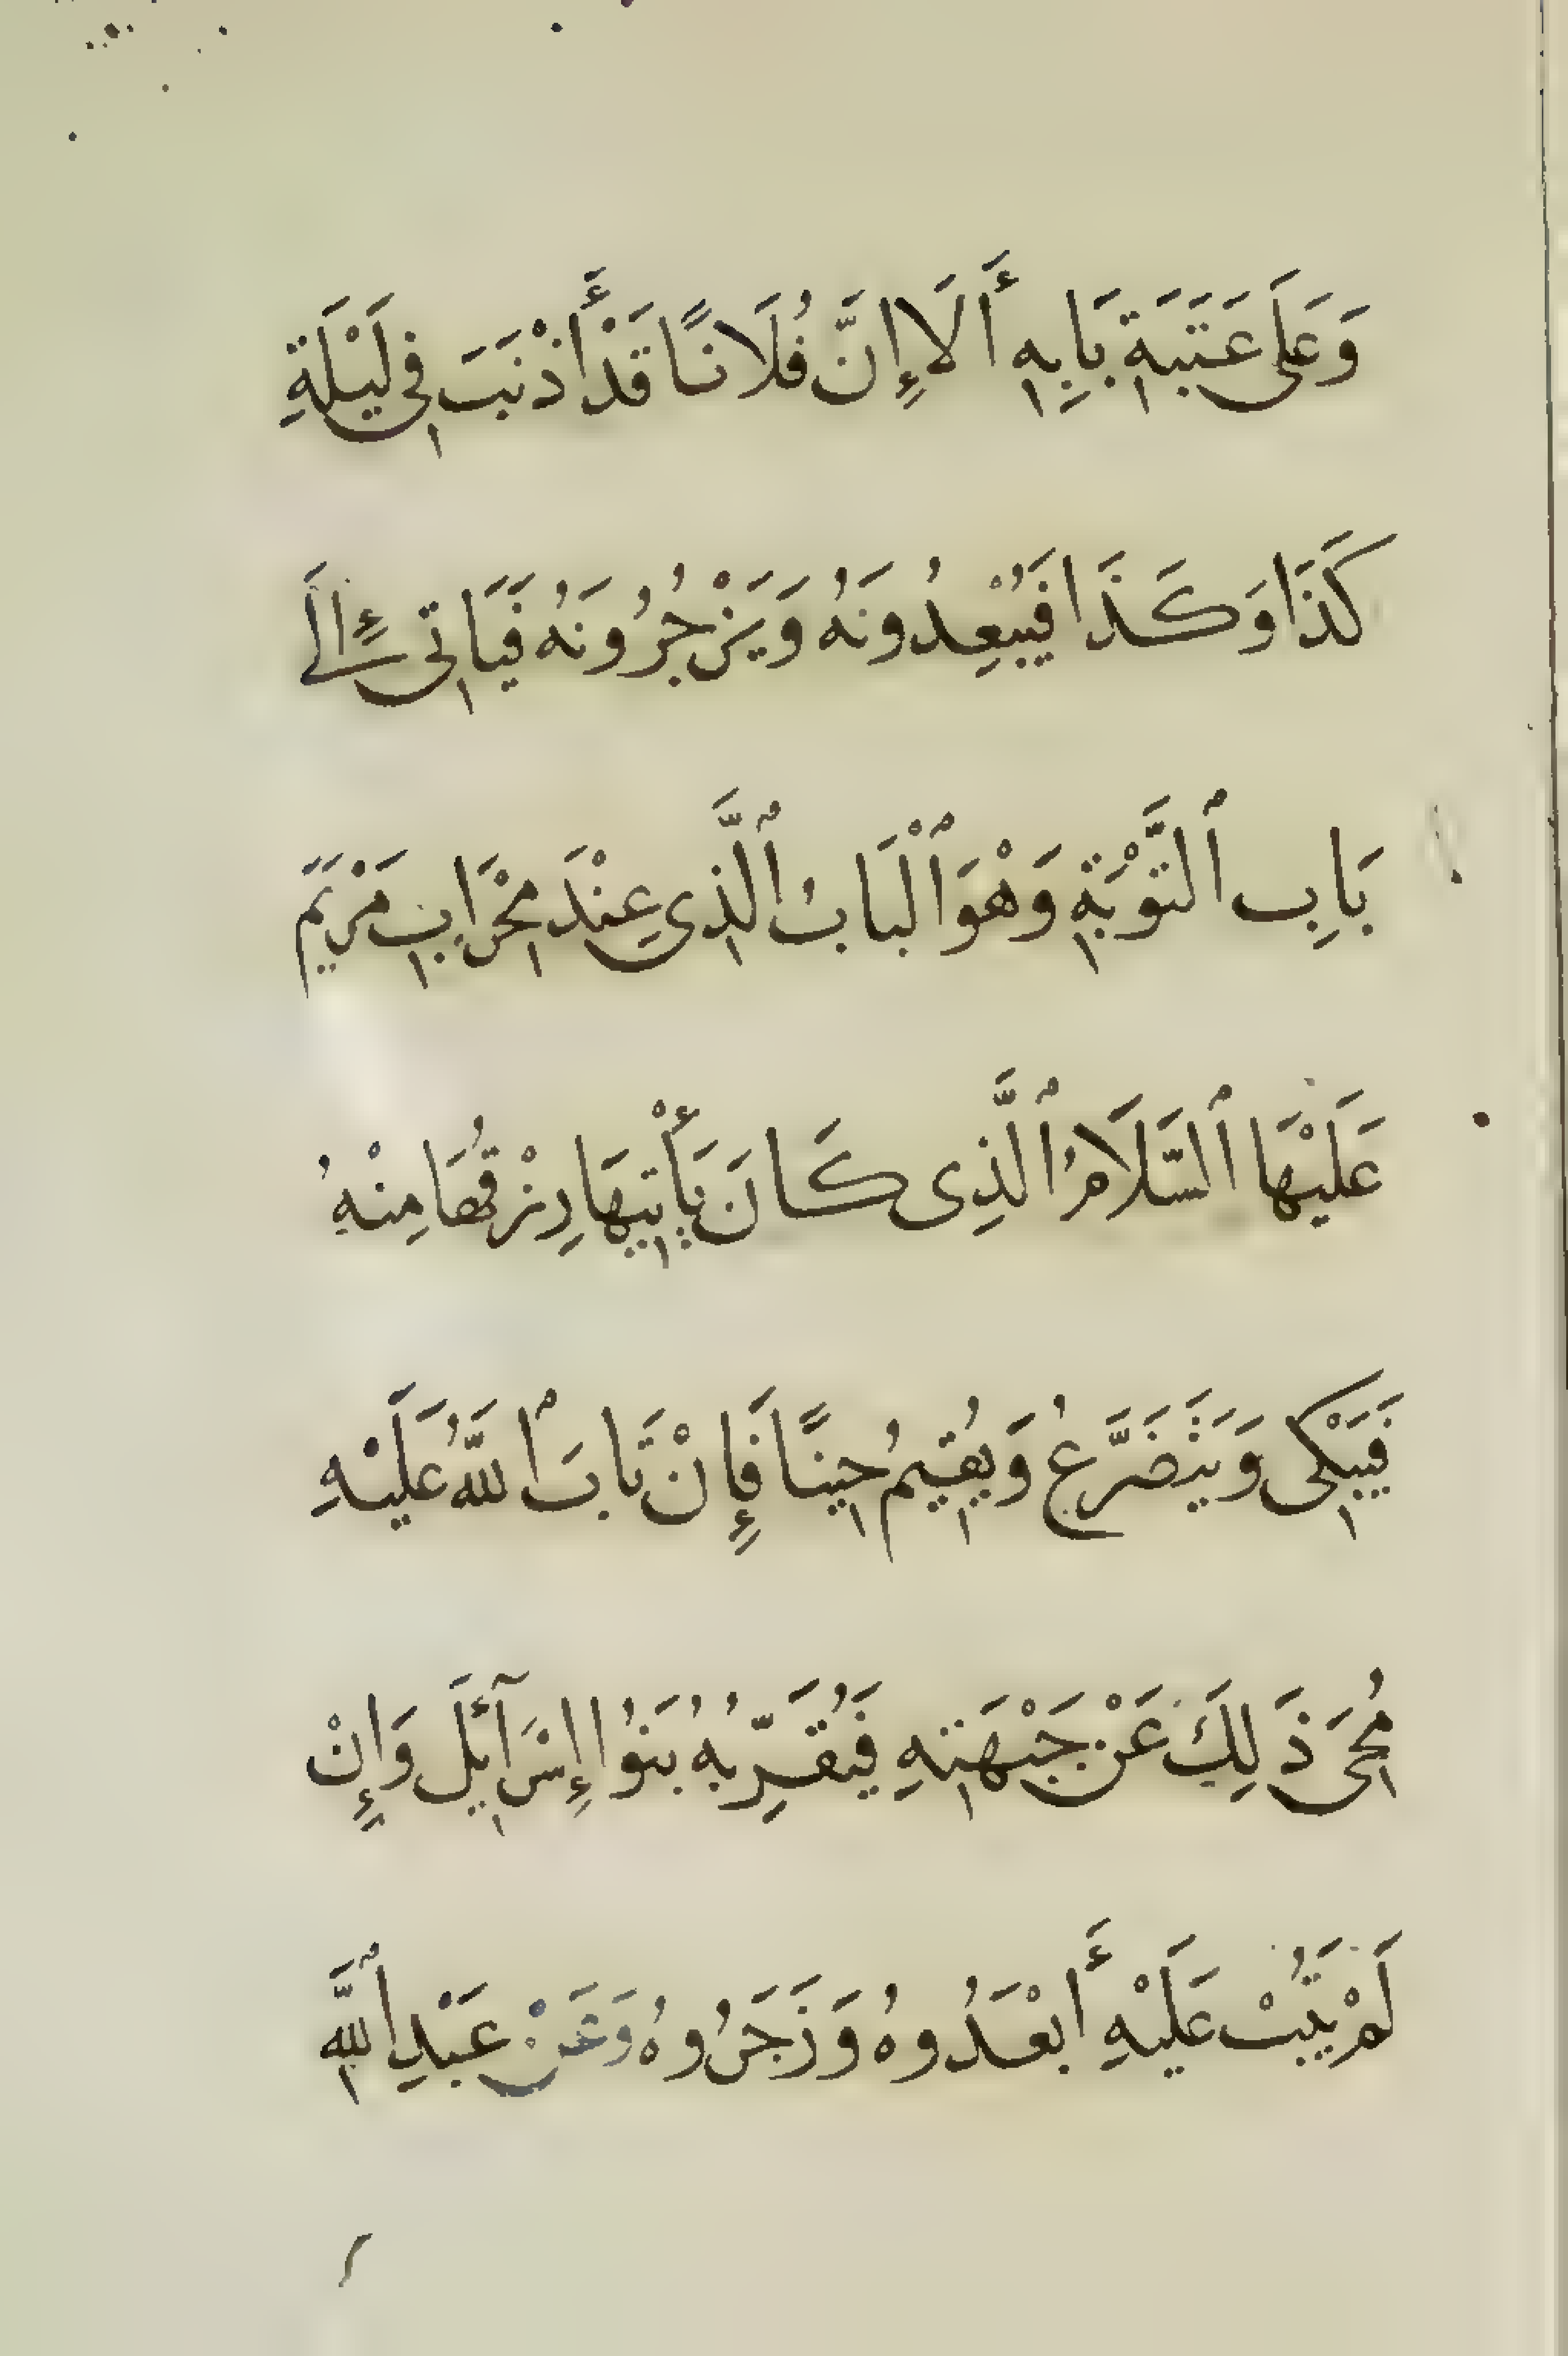 وَعَلَى عَتَبَةِ بَابِهِ أَلَا إِنَّ فُلَانًا قَدْ أَذْنَبَ فِي لَيْلَةِ
كَذَا وَكَذَا فَيُبْعِدُونَهُ وَيَزْجُرُونَهُ فَيَاتِى إِلَى
بَابِ ٱلتَّوْبَةِ وَهْوَ ٱلْبَابُ ٱلَّذِي عِنْدَ مِحْرَابِ مَرْيَمَ
عَلَيْهَا ٱلسَّلَامُ ٱلَّذِى كَانَ يَأْتِيهَا رِزْقُهَا مِنْهُ
فَيَبْكِى وَيَتَضَرَّعُ وَيُقِيمُ حِينًا فَإِنْ تَابَ ٱللَّهُ عَلَيْهِ
مُحِىَ ذَلِكَ عَنْ جَبْهَتِهِ فَيُقَرِّبُهُ بَنُوا إِسْرَآئِلَ وَإِنْ
لَمْ يَتُبْ عَلَيْهِ أَبْعَدُوهُ وَزَجَرُوهُ وَعَنْ عَبْدِ ٱللَّهِ